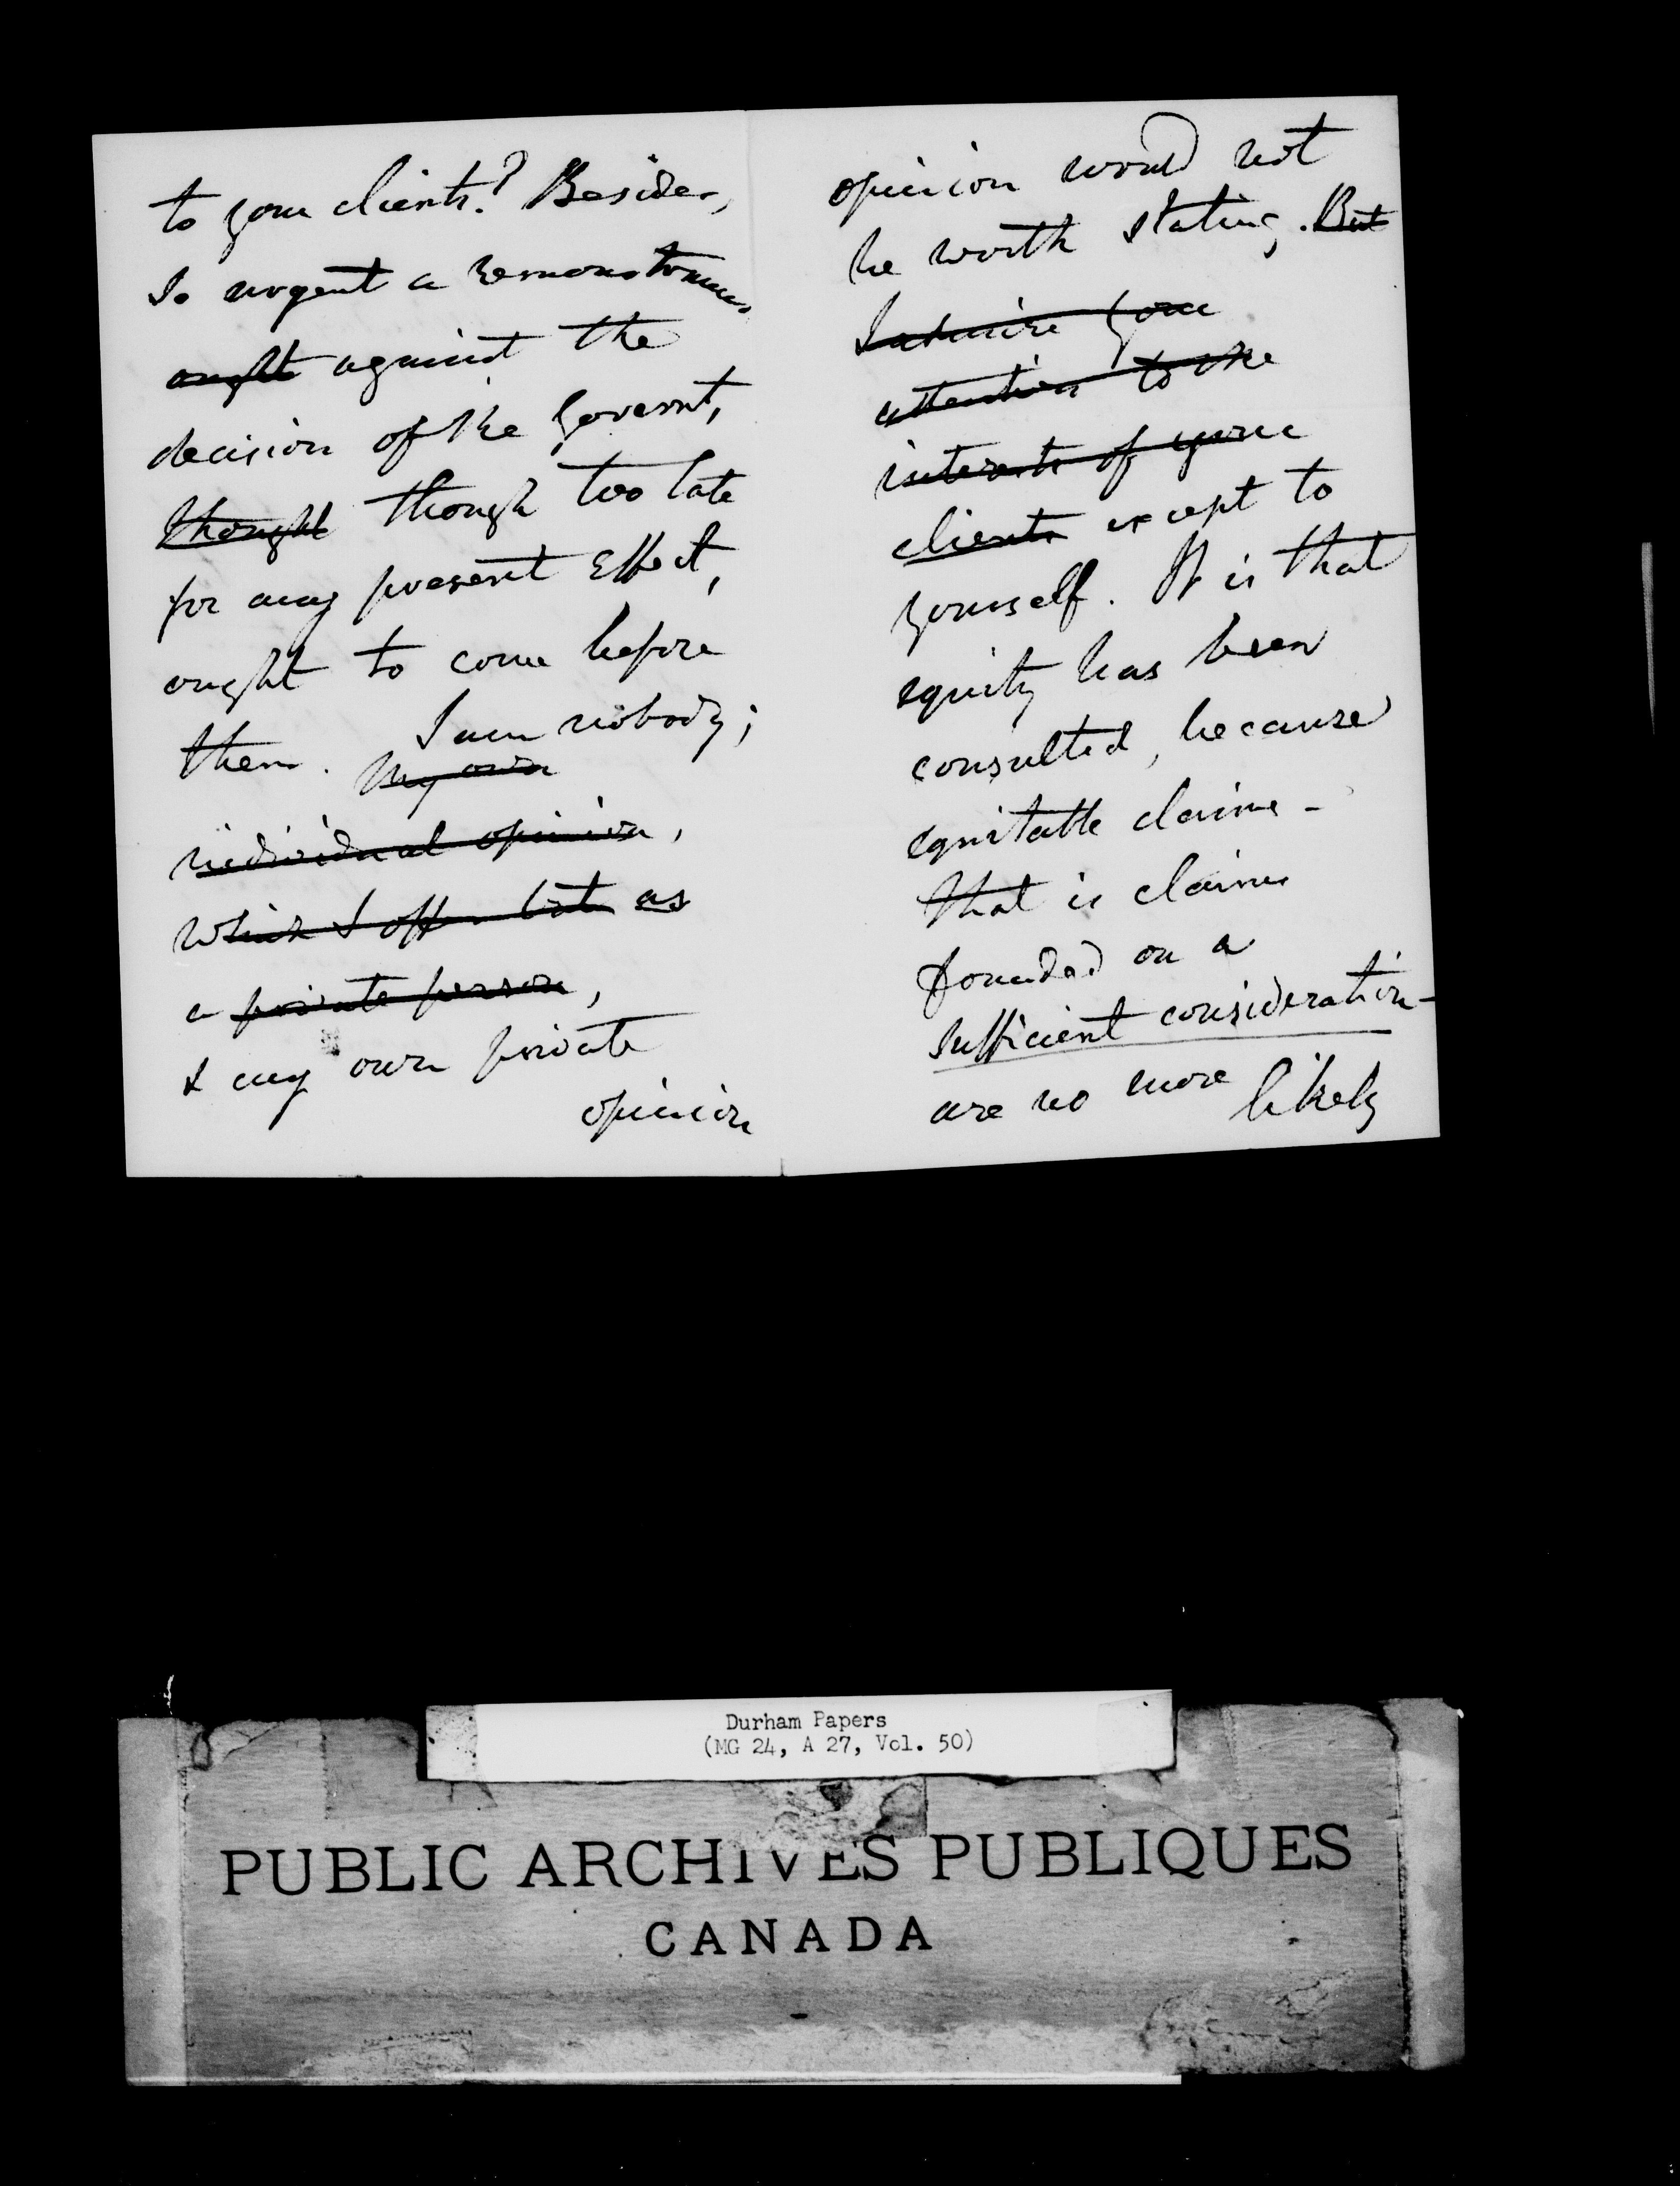 to your clients? Besides,
so urgent a remonstrance
ought against the
decision of the Governt,
thought though too late
for any present effect,
ought to come before
them. I am nobody;
My own
individual opinion,
which I offer but as
a private person,
& my own private
opinion
opinion would not
be worth stating. But
I admire your
attention to the
interests of your
clients except to
yourself. It is that
equity has been
consulted, because
equitable claims -
that is claims
founded on a
sufficient consideration -
are no more likely
Durham Papers
(MG 24, A 27, Vol. 50)
PUBLIC ARCHIVES PUBLIQUES
CANADA